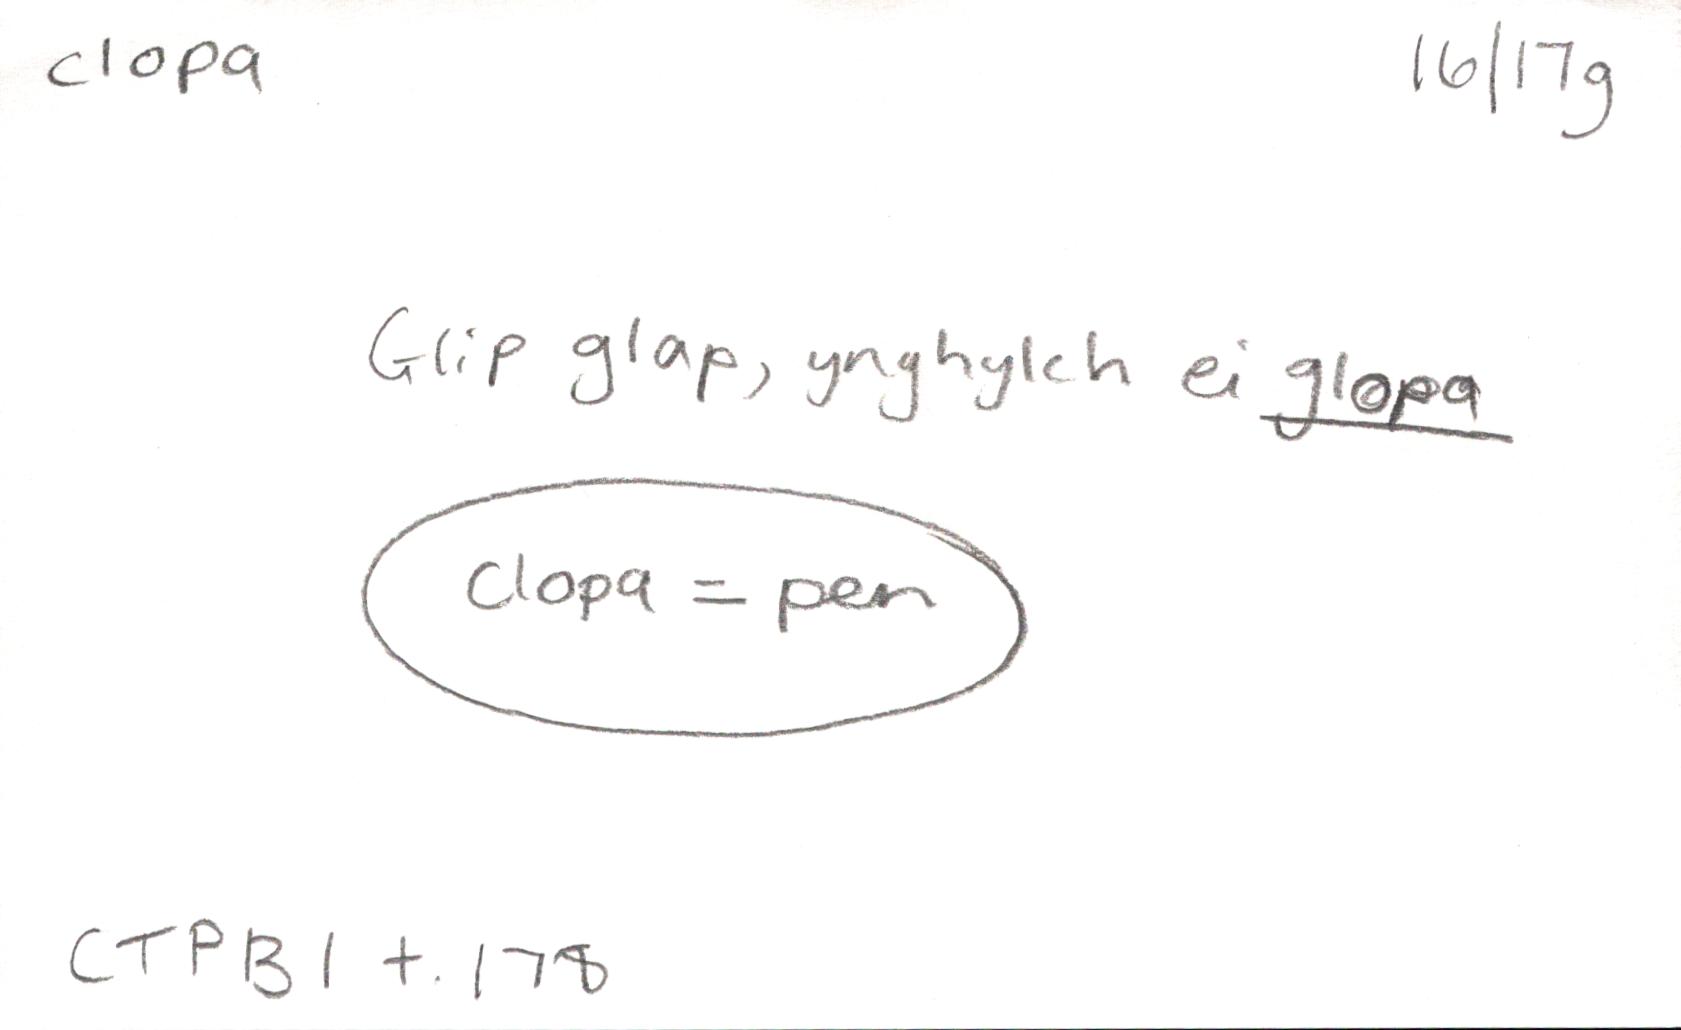 clopa
16/17g
Glip glap, ynghylch ei glopa
clopa = pen
CTPB1 t.178